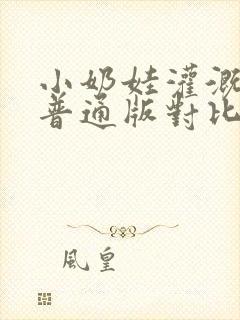 小奶娃灌溉
普通版對比
風皇